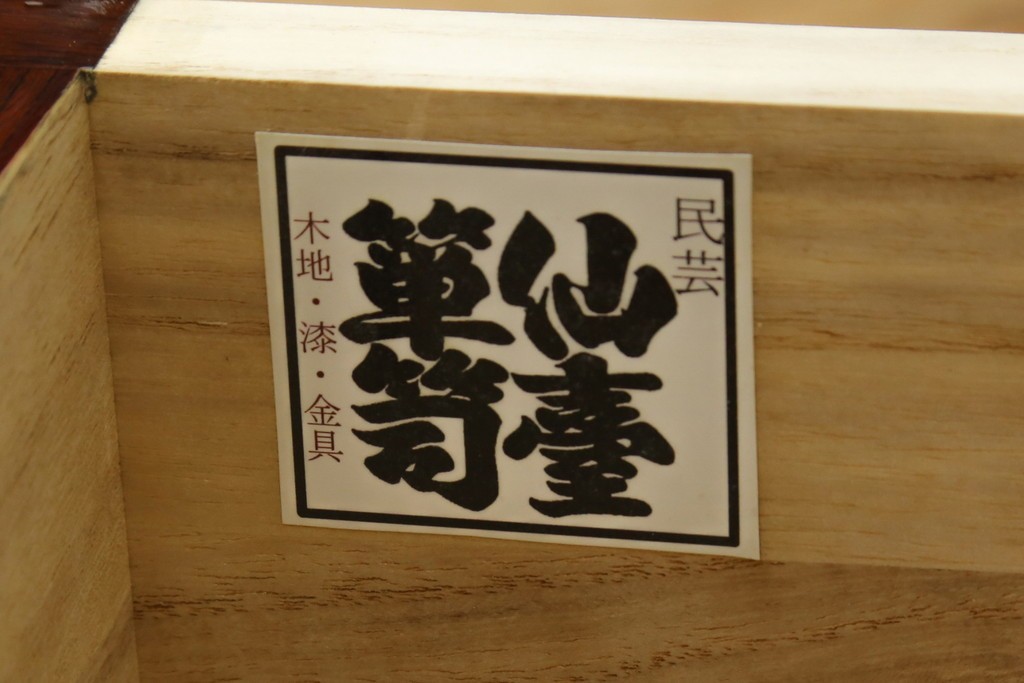 民芸
仙臺
箪笥
木地・漆・金具